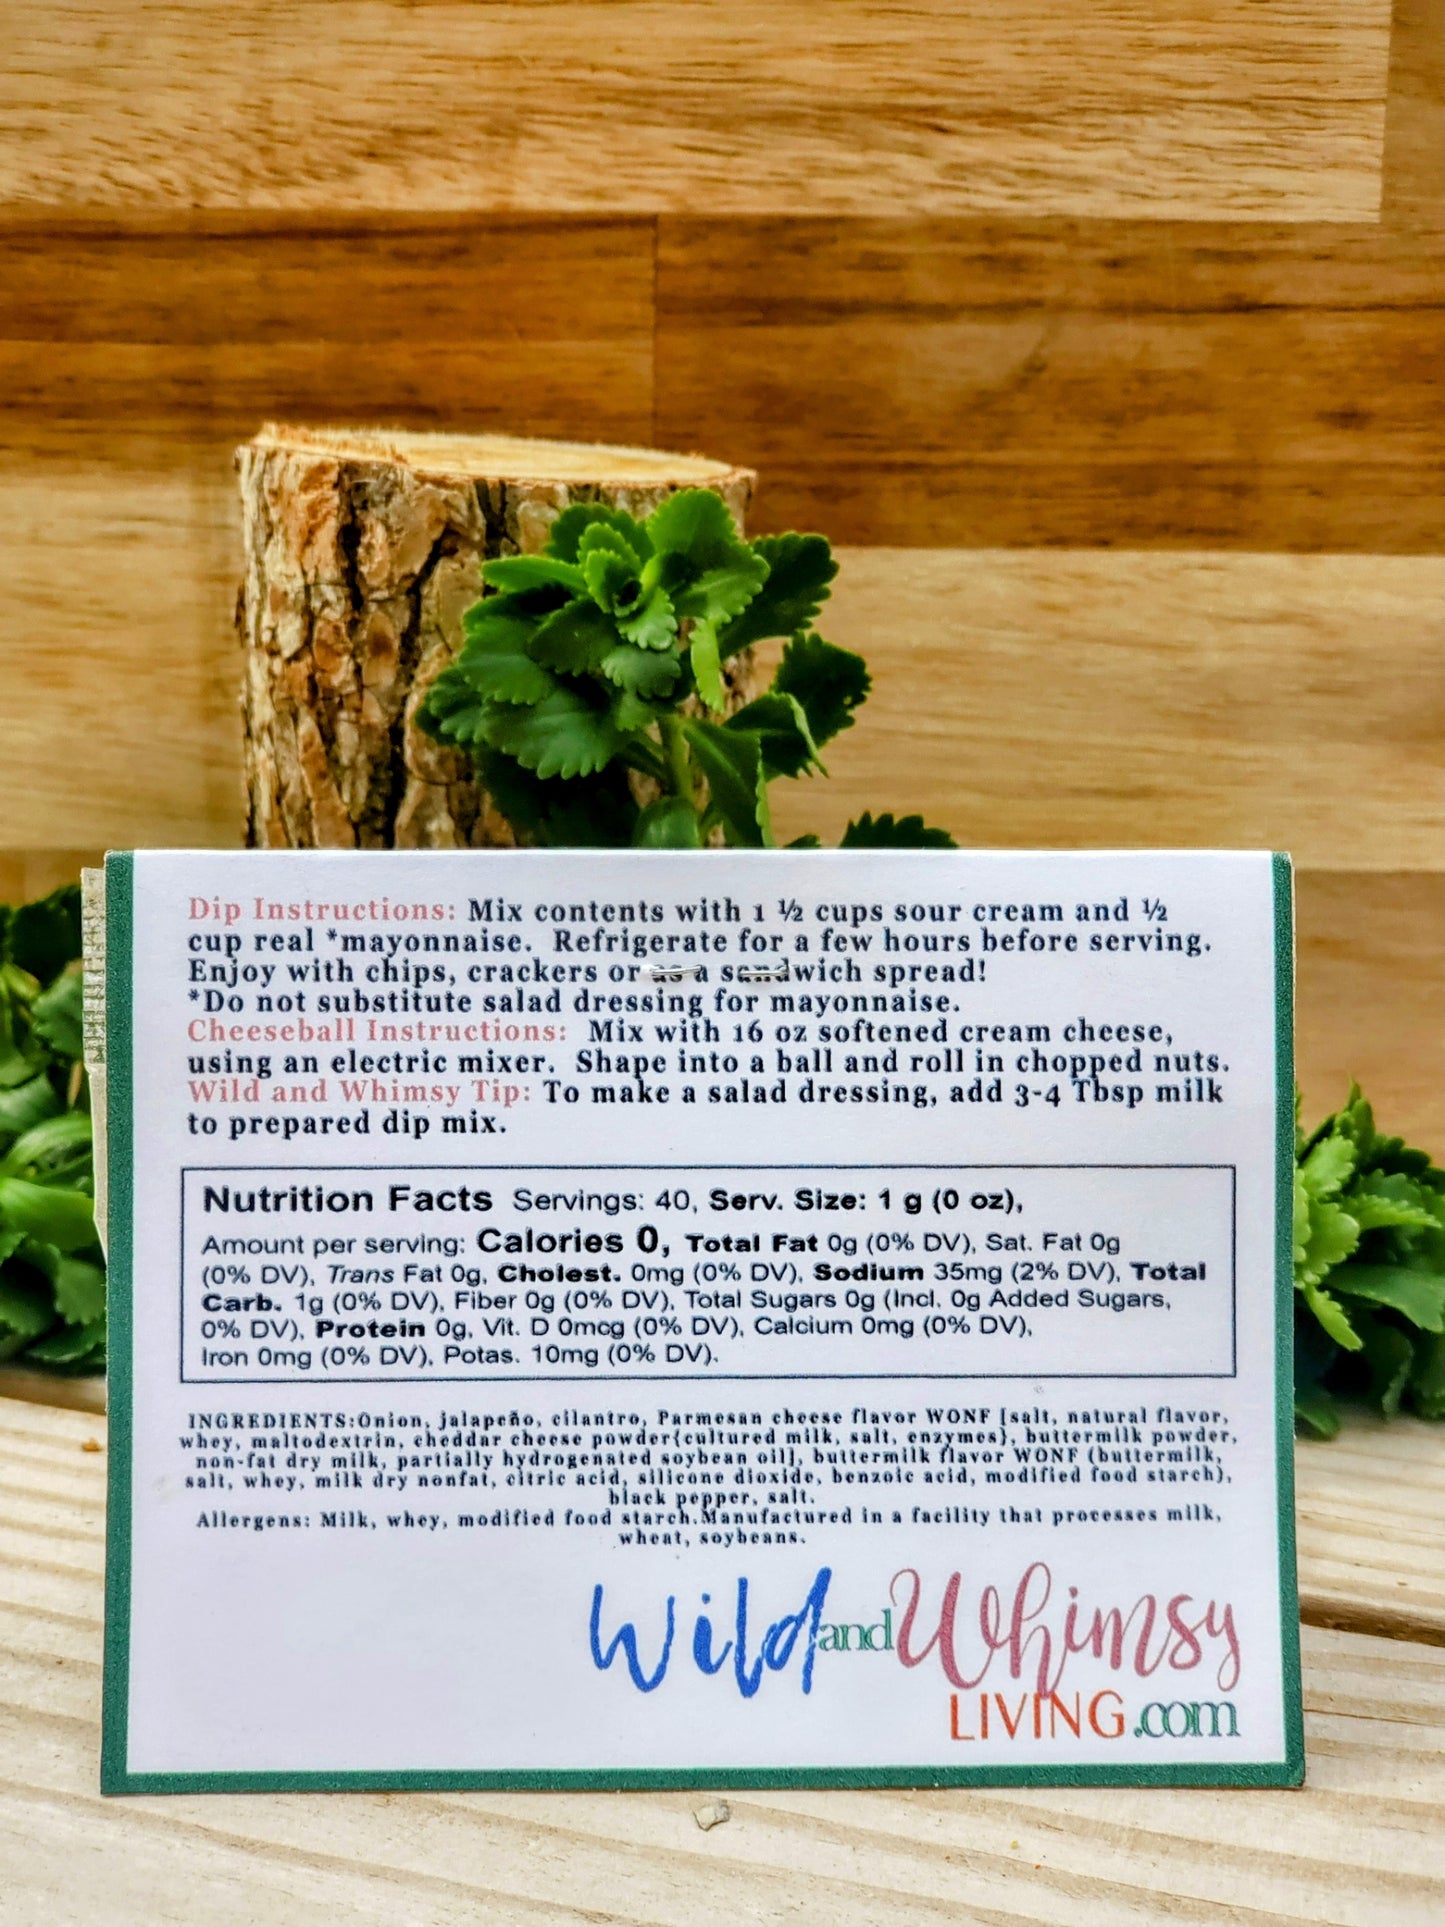 Dip Instructions: Mix contents with 1 ½ cups sour cream and ½
cup real *mayonnaise. Refrigerate for a few hours before serving.
Enjoy with chips, crackers or as a sandwich spread!
*Do not substitute salad dressing for mayonnaise.
Cheeseball Instructions: Mix with 16 oz softened cream cheese,
using an electric mixer. Shape into a ball and roll in chopped nuts.
Wild and Whimsy Tip: To make a salad dressing, add 3-4 Tbsp milk
to prepared dip mix.
Nutrition Facts Servings: 40, Serv. Size: 1 g (0 oz),
Amount per serving: Calories 0, Total Fat 0g (0% DV), Sat. Fat 0g
(0% DV), Trans Fat 0g, Cholest. 0mg (0% DV), Sodium 35mg (2% DV), Total
Carb. 1g (0% DV), Fiber 0g (0% DV), Total Sugars 0g (Incl. 0g Added Sugars,
0% DV), Protein 0g, Vit. D 0mcg (0% DV), Calcium 0mg (0% DV),
Iron 0mg (0% DV), Potas. 10mg (0% DV).
INGREDIENTS:Onion, jalapeño, cilantro, Parmesan cheese flavor WONF [salt, natural flavor,
whey, maltodextrin, cheddar cheese powder{cultured milk, salt, enzymes}, buttermilk powder,
non-fat dry milk, partially hydrogenated soybean oil], buttermilk flavor WONF (buttermilk,
salt, whey, milk dry nonfat, citric acid, silicone dioxide, benzoic acid, modified food starch),
black pepper, salt.
Allergens: Milk, whey, modified food starch.Manufactured in a facility that processes milk,
wheat, soybeans.
Wild and Whimsy
LIVING.com